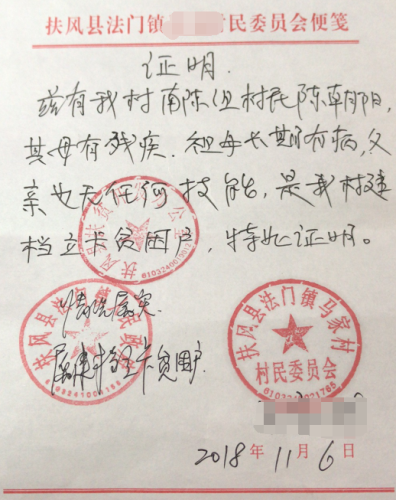 扶风县法门镇 村民委员会便笺
证明.
兹有我村南陈组村民陈朝阳,
其母有残疾.祖母长期有病,父
亲也无任何技能,是我村建
档立卡贫困户,特此证明。
扶风县
情况属实
属建档立卡贫困户
扶风县法门镇
扶风县法门镇马家村
村民委员会
2018年11月6日